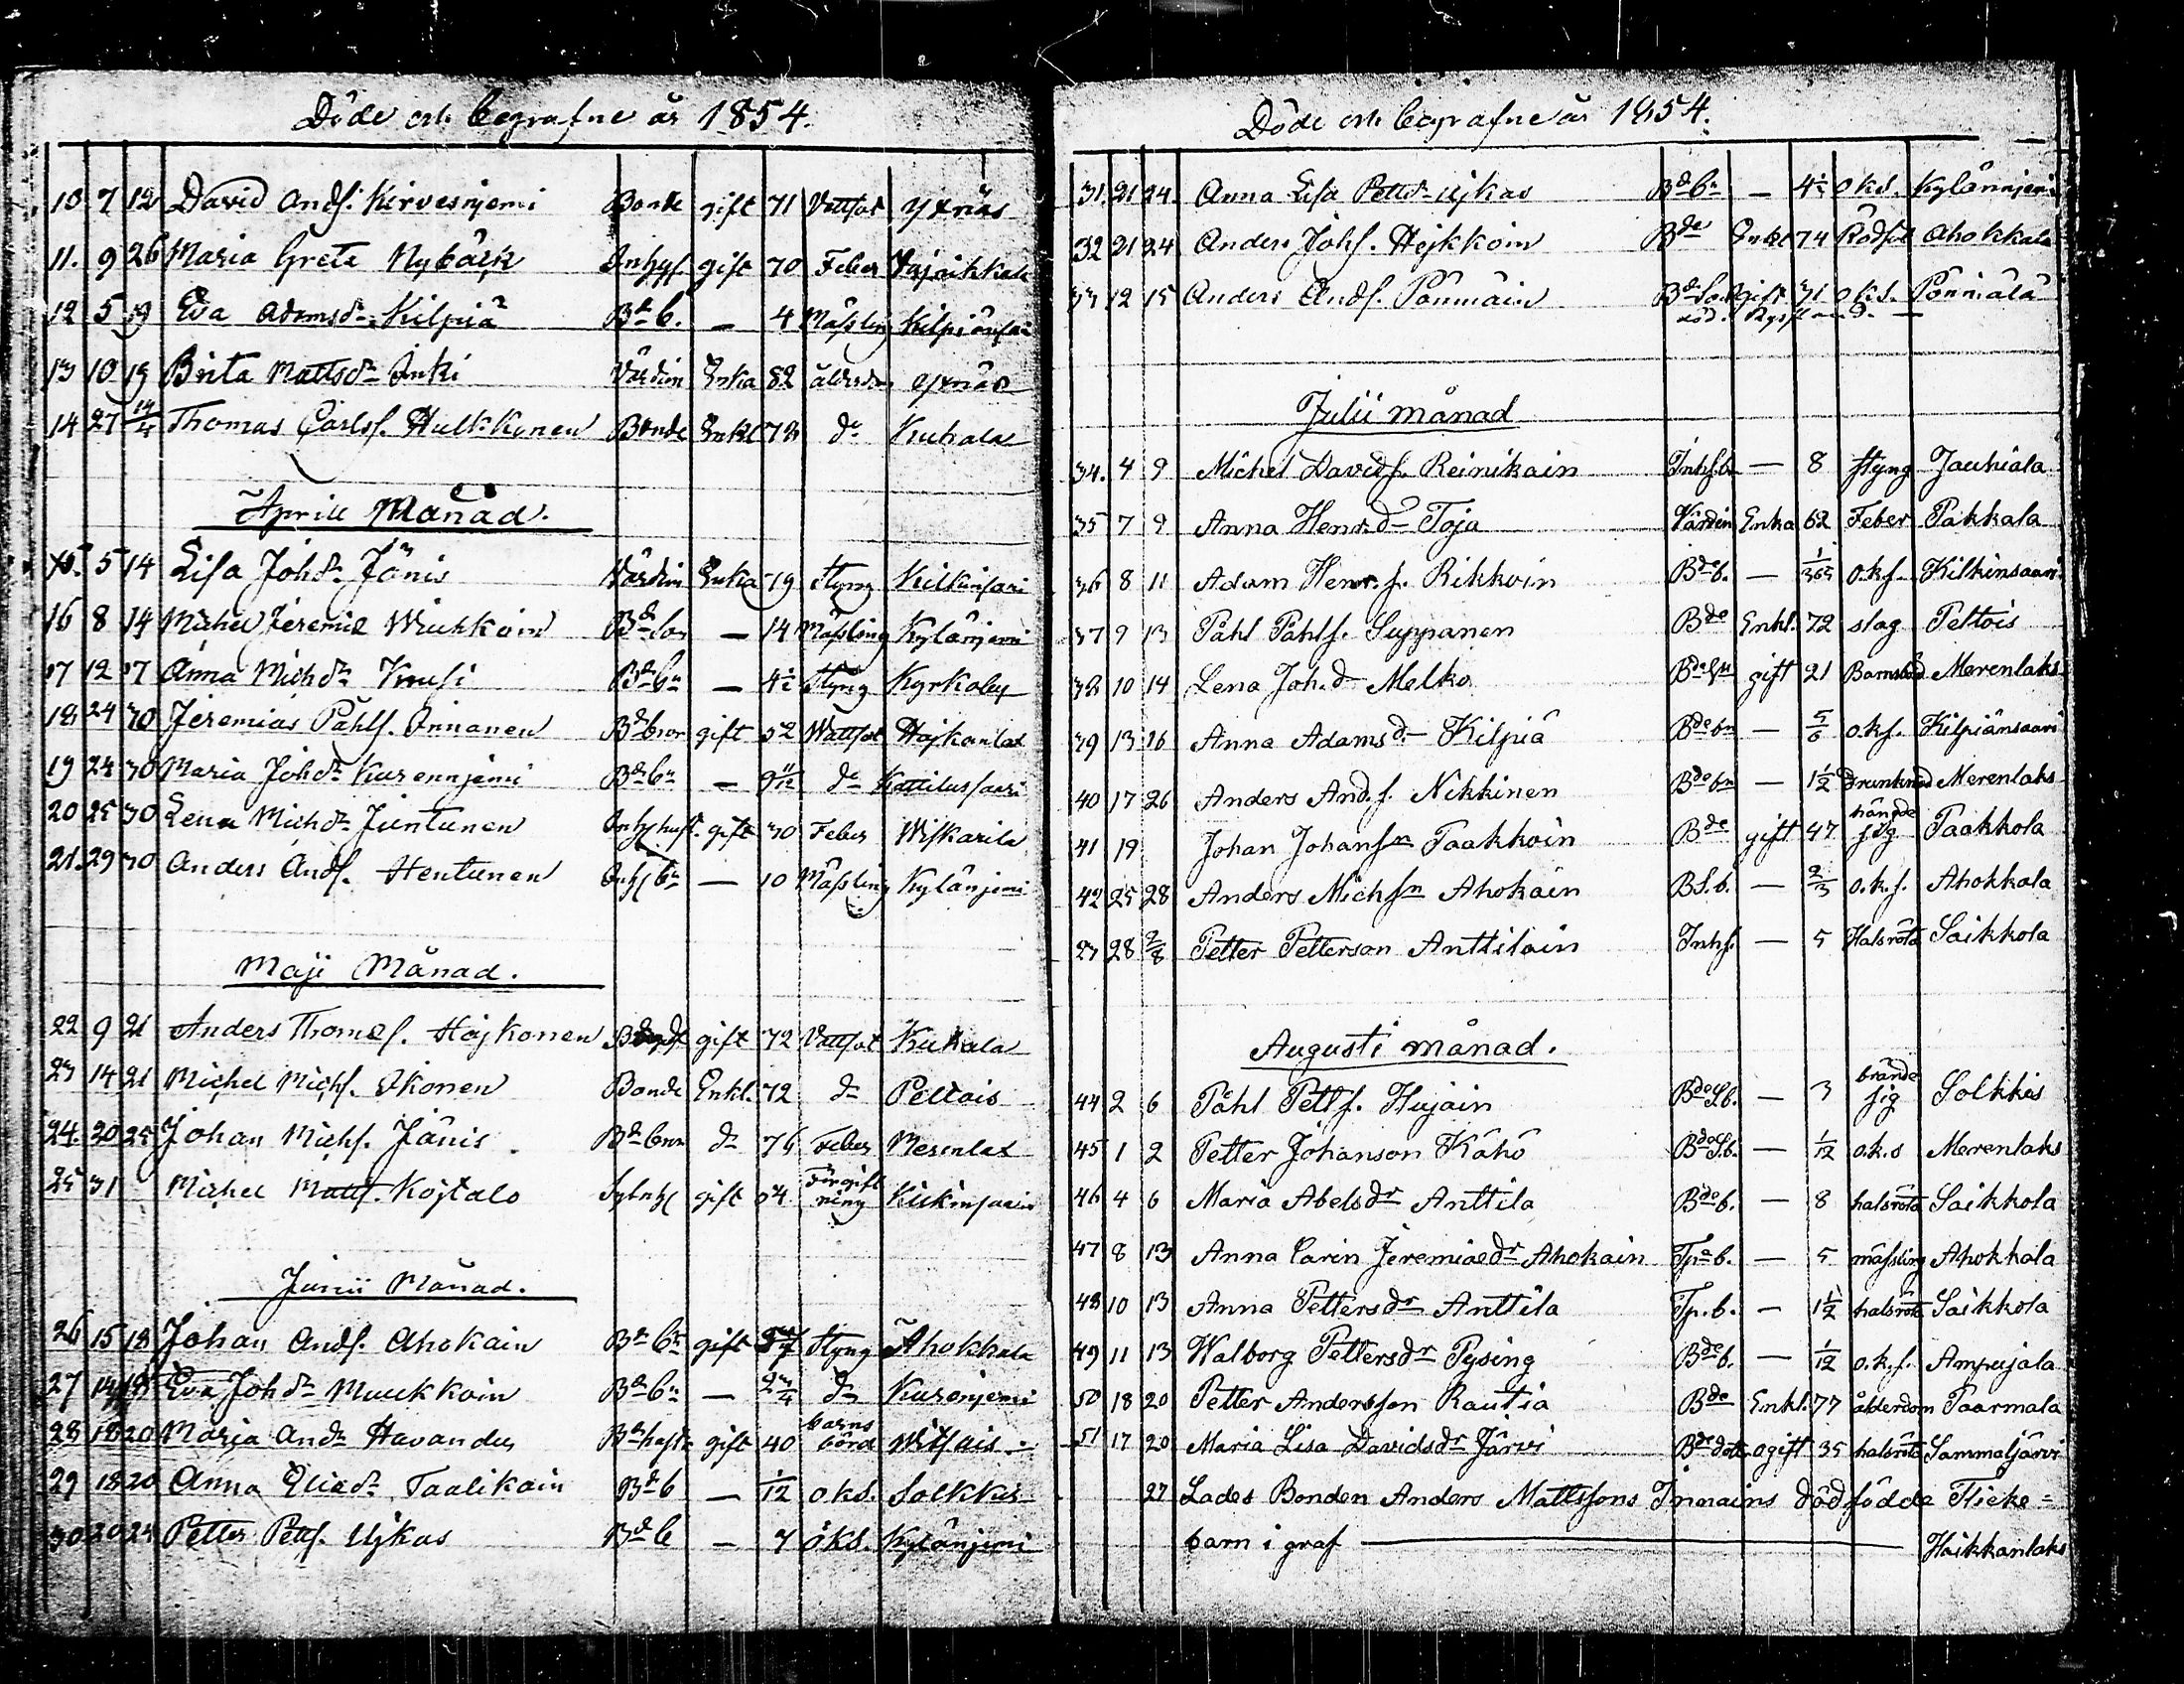 Döde och begrafne år 1854.
10 7 12 David Andſ. Kirvesnjemi Bonde gift 71 Vattſot Yxnäs
11. 9 26 Maria Greta Nybäck Inhyſ. gift 70 Feber Vajaikkala
12 5 19 Eva Adamsdr Kilpiä Bdeb. — 4 Mäßling Kilpiänſari
13 10 19 Brita Mattsdr Inki Värdin Enka 82 ålderdom Yxnäs
14 27 Thomas Carlsſ. Hulkkonen Bonde Enkl 73 do Kuhala
Aprill Månad.
15. 5 14 Lisa Johdr Jänis Värdin Enka 79 Styng Kilkinſari
16 8 14 Michel Jeremiæ Wiukkoin Bdeson — 14 Mäßling Kylänjemi
17 12 17 Anna Michdr Kruſi Bdebn — 4½ Styng Kyrkoby
18 24 30 Jeremias Påhlſ. Innanen Bdebror gift 52 Wattſot Hajkanlax
19 24 30 Maria Johdr Kurennjemi Bdebn — 9 11/12 do Kattilusſaari
20 25 30 Lena Michdr Juntunen Inhyhust. gift 30 Feber Wiſkarila
21. 29 30 Anders Andſ. Hentunen Inhyſbn — 10 Mäßling Kylänjemi
Maji Månad.
22 9 21 Anders Thomeſ. Häjkonen gift 72 Vattſot Kukala
23 14 21 Michel Michſ. Ikonen Bonde Enkl. 72 do Peltois
24. 20 25 Johan Michſ. Jänis Bdebror do 76 Feber Merenlax
25 31 Michel Mattſ. Kojtalo Sytnhſ gift 64 Förgiftning Kilkinſaari
Junii Månad.
26 15 18 Johan Andſ. Ahokain Bdebr gift Styng Ahokkala
27 14 18 Eva Johdr Muukkoin Bdebn — 2¾ do Kurenjemi
28 18 20 Maria Anddr Havandus Bdehustr gift 40 barns börd Witſais
29 18 20 Anna Eliædr Taalikain Bdeb — 1/12 o.k.s. Solkkis
30 20 24 Petter Pettſ. Ujkas Bdeb — 7 o.k.s. Kylänjemi
Döde och begrafne år 1854.
31. 21 24. Anna Lisa Pettdr Ujkas Bdebn — 4½ o.k.s. Kylännjemi
32 21 24 Anders Johſ. Hejkkoin Bde Enkl 74 Rödsot Ahokkala
33 12 15 Anders Andſ. Pönniäin Bdeson gift 31 o.k.s. Pönniälä
död. Ryssland. —
Julii månad
34. 4 9 Michel Davidſ. Reinikain Inhſb — 8 styng Jauhiala
35 7 9 Anna Henr.dr Toja Värdin Enka 62 Feber Pakkala
36 8 11 Adam Henr.ſ. Rikkoin Bdeb. — 1/365 o.k.ſ. Kilkinsaari
37 9 13 Påhl Påhlſ. Suppanen Bde Enkl. 72 slag Peltois
38 10 14 Lena Joh.dr Melko gift 21 Barnsbörd Merenlaks
39 13 16 Anna Adamsdr Kilpiä Bdebn — 5/6 o.k.ſ. Kilpiänsaari
40 17 26 Anders And.ſ. Nikkinen Bdebn — 1½ Drunknad Merenlaks
41 19 Johan Johanſn Paakkoin Bde gift 47 hängde sig Paakkola
42 25 28 Anders Michſn Ahokain B.S.b. — 2/3 o.k.ſ. Ahokkala
23 28 2/8 Petter Petterson Anttilain Inhſ — 5 Halsröta Saikkola
Augusti månad.
44 2 6 Påhl Pettſ. Hujain BdeS.b. — 3 brände sig Solkkis
45 1 2 Petter Johanson Kähö BdeS.b. — 1/12 o.k.s Merenlaks
46 4 6 Maria Abelsdr Anttila Bdeb. — 8 halsröta Saikkola
47 8 13 Anna Carin Jeremiædr Ahokain Tpeb. — 5 mäßling Ahokkala
48 10 13 Anna Pettersdr Anttila Tp.b. — 1½ halsröta Saikkola
49 11 13 Walborg Pettersdr Pysing Bdeb. — 1/12 o.k.ſ. Ampujala
50 18 20 Petter Andersſon Rautia Bde Enkl. 77 ålderdom Paarmala
51 17 20 Maria Lisa Davidsdr Järvi Bdedott. ogift 35 halsröta Sammaljärvi
27 Lades Bonden Anders Mattsſons Innains dödfödde Flicke=
barn i graf — Haikkanlaks